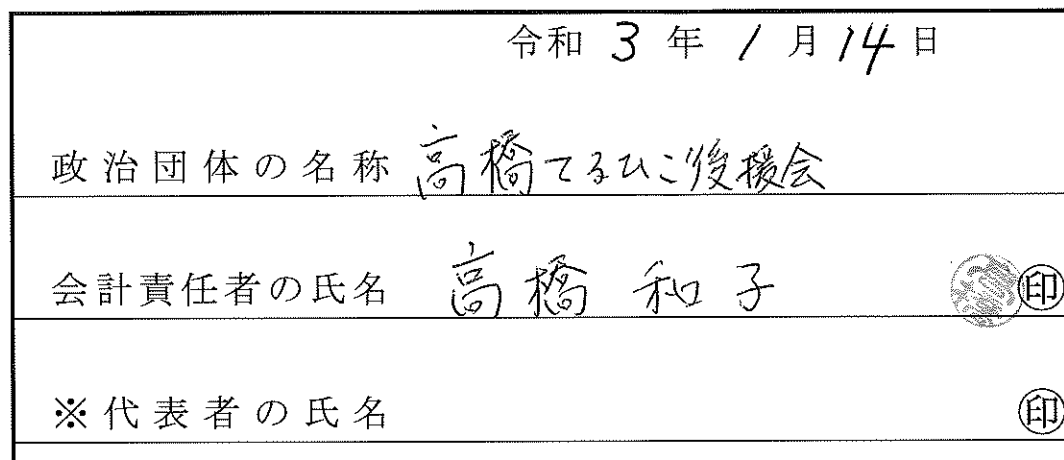 令和 3 年 1 月 14 日
政治団体の名称 高橋てるひこ後援会
会計責任者の氏名 高橋 和子 印
※代表者の氏名 印